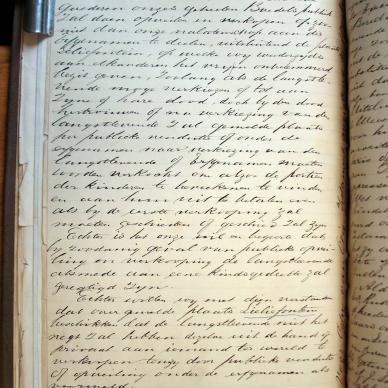 Goederen onzes geheelen Boedels publiek
zal doen opveilen en verkoopen op zoo
niet dan onze nalatenschap aan de
erfgenamen te deelen, uitsluitend de plaats
Liesfontein, op welke wij wederzijds
aan elkanderen het vrijen onbelemmerd
Regt geven, Zoolang als de langstle-
vende moge verkiezen of tot aan
Zyne of hare dood, doch by den dood
hertrouwen of na verkiezing van den
langstlevende Zal gemelde plaats
per publieke vendutie of onder de
erfgenamen naar verkiezing van den
Langstlevende of Erfgenamen moeten
worden verkocht om alzoo de portien
der kinderen te berekenen te vinden
en aan hun uit te betalen even
als by de eerste verkooping zal
moeten geschieden of geschied Zal zyn
Echter is het onze wil en begeerte dat
by zoodanig geval van publieke opvei-
ling en verkooping de langstlevende
alsmede aan eene kindsgedeelte zal
geregtigd Zyn.
Echter willen wy met dien verstande
dat over gemelde plaats
beschikken dat de langstlevende niet het
regt Zal hebben dezelve uit de hand of
privaat aan iemand ter wereld te
verkoopen tenzy door publieke vendutie
of opveiling onder de erfgenamen als
vermeld.